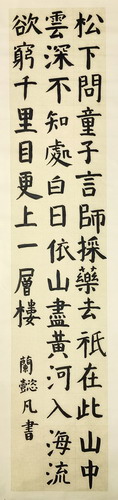 松下問童子言師採藥去祇在此山中
雲深不知處白日依山盡黃河入海流
欲窮千里目更上一層樓
蘭懿凡書